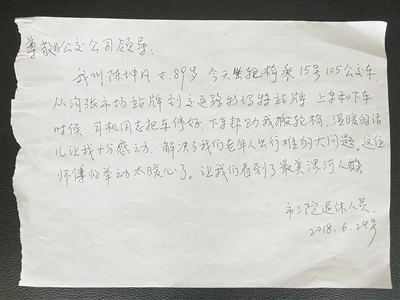 尊敬的公交公司领导:
我叫陈坤凡 女 89岁、今天坐轮椅乘15号105公交车
从沟张市场站牌到交通路 站牌 上车和下车
时候、司机同志把车停好、下车帮助我搬轮椅、温暖的话
儿让我十分感动、解决了我们老年人出行难的大问题、这位
师傅的举动太暖心了。让我们看到了最美漯河人
市三院退休人员
2018.6.24号